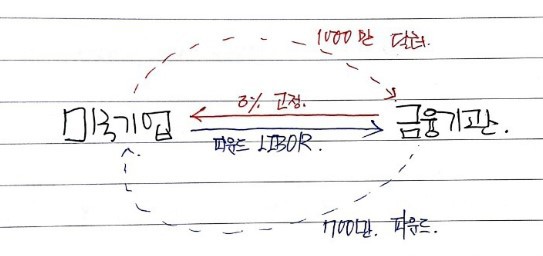 1000만 달러.
3% 고정.
미국기업
금융기관.
파운드 LIBOR.
700만. 파운드.